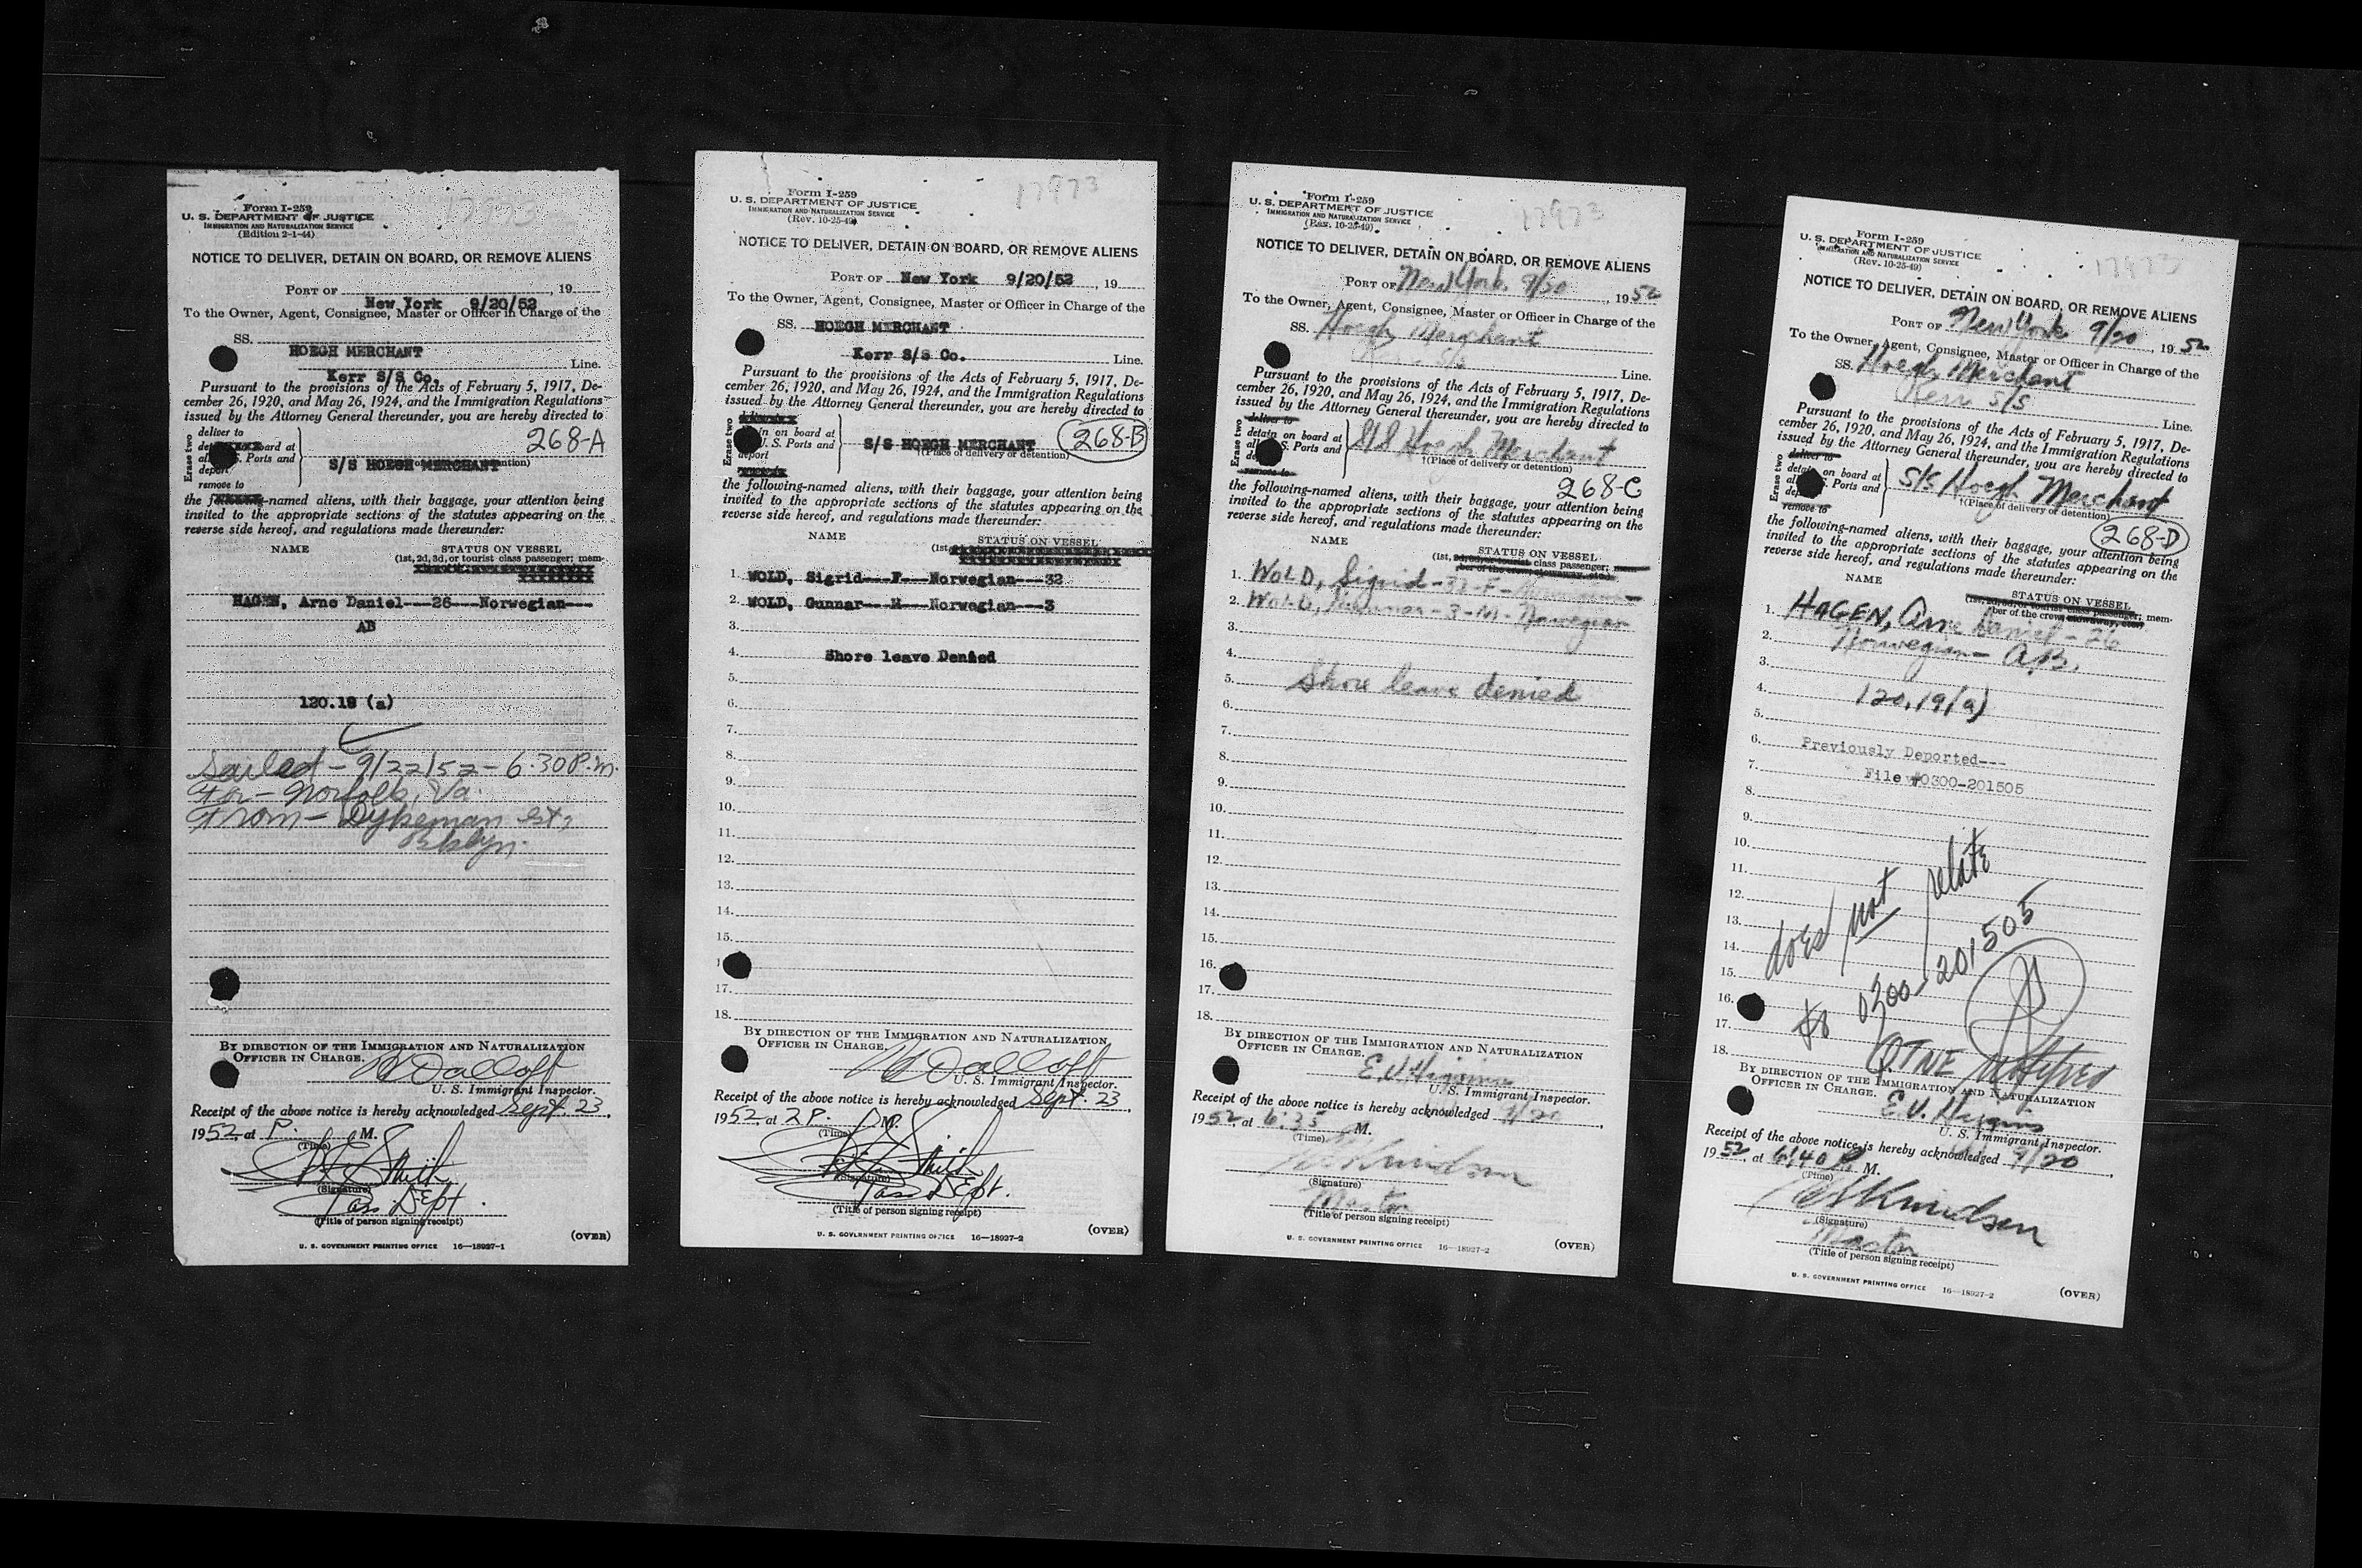 17973
Form I-259
U. S. DEPARTMENT OF JUSTICE
IMMIGRATION AND NATURALIZATION SERVICE
(Edition 2-1-44)
NOTICE TO DELIVER, DETAIN ON BOARD, OR REMOVE ALIENS
PORT OF , 19
New York 9/20/52
To the Owner, Agent, Consignee, Master or Officer in Charge of the
SS.
HOEGH MERCHANT
Line.
Kerr S/S Co.
Pursuant to the provisions of the Acts of February 5, 1917, De-
cember 26, 1920, and May 26, 1924, and the Immigration Regulations
issued by the Attorney General thereunder, you are hereby directed to
Erase two
deliver to
board at
S. Ports and
deport
remove to
268-A
S/S HOEGH MERCHANT
the -named aliens, with their baggage, your attention being
invited to the appropriate sections of the statutes appearing on the
reverse side hereof, and regulations made thereunder:
NAME STATUS ON VESSEL
(1st, 2d, 3d, or tourist class passenger; mem-
HAGEN, Arne Daniel---26---Norwegian---
AB
120.19 (a)
Sailed - 9/22/52 - 6:30 P.M.
For - Norfolk, Va.
From - Dykeman St,
Bklyn.
BY DIRECTION OF THE IMMIGRATION AND NATURALIZATION
OFFICER IN CHARGE.
U. S. Immigrant Inspector.
Receipt of the above notice is hereby acknowledged Sept. 23,
1952, at P. M.
(Time)
Smith
(Signature)
Pass Dept.
(Title of person signing receipt)
(OVER)
U. S. GOVERNMENT PRINTING OFFICE 16—18927-1
17973
Form I-259
U. S. DEPARTMENT OF JUSTICE
IMMIGRATION AND NATURALIZATION SERVICE
(Rev. 10-25-49)
NOTICE TO DELIVER, DETAIN ON BOARD, OR REMOVE ALIENS
PORT OF New York 9/20/52, 19
To the Owner, Agent, Consignee, Master or Officer in Charge of the
SS. HOEGH MERCHANT
Kerr S/S Co. Line.
Pursuant to the provisions of the Acts of February 5, 1917, De-
cember 26, 1920, and May 26, 1924, and the Immigration Regulations
issued by the Attorney General thereunder, you are hereby directed to
Erase two
on board at
U. S. Ports and
deport
S/S HOEGH MERCHANT 268-B
†(Place of delivery or detention)
the following-named aliens, with their baggage, your attention being
invited to the appropriate sections of the statutes appearing on the
reverse side hereof, and regulations made thereunder:
NAME STATUS ON VESSEL
(1st,
1. WOLD, Sigrid---F---Norwegian---32
2. WOLD, Gunnar---M---Norwegian---3
3.
4. Shore leave Denied
5.
6.
7.
8.
9.
10.
11.
12.
13.
14.
15.
17.
18.
BY DIRECTION OF THE IMMIGRATION AND NATURALIZATION
OFFICER IN CHARGE.
U. S. Immigrant Inspector.
Receipt of the above notice is hereby acknowledged Sept. 23,
1952, at 2 P. M.
(Time)
Smith
(Signature)
Pass Dept.
(Title of person signing receipt)
(OVER)
U. S. GOVERNMENT PRINTING OFFICE 16—18927-2
17973
Form I-259
U. S. DEPARTMENT OF JUSTICE
IMMIGRATION AND NATURALIZATION SERVICE
(Rev. 10-25-49)
NOTICE TO DELIVER, DETAIN ON BOARD, OR REMOVE ALIENS
PORT OF New York 9/20, 1952
To the Owner, Agent, Consignee, Master or Officer in Charge of the
SS. Hoegh Merchant
Kerr S/S Line.
Pursuant to the provisions of the Acts of February 5, 1917, De-
cember 26, 1920, and May 26, 1924, and the Immigration Regulations
issued by the Attorney General thereunder, you are hereby directed to
Erase two
deliver to
detain on board at
S. Ports and
remove to
S/S Hoegh Merchant
†(Place of delivery or detention)
268-C
the following-named aliens, with their baggage, your attention being
invited to the appropriate sections of the statutes appearing on the
reverse side hereof, and regulations made thereunder:
NAME STATUS ON VESSEL
(1st, 2d, 3d, or tourist class passenger; mem-
ber of the crew, stowaway, etc.)
1. WOLD, Sigrid - 32 - F - Norwegian
2. WOLD, Gunnar - 3 - M - Norwegian
3.
4.
5. Shore leave denied
6.
7.
8.
9.
10.
11.
12.
13.
14.
15.
16.
17.
18.
BY DIRECTION OF THE IMMIGRATION AND NATURALIZATION
OFFICER IN CHARGE.
E. V. Higgins
U. S. Immigrant Inspector.
Receipt of the above notice is hereby acknowledged 9/20,
1952, at 6:35 M.
(Time)
Knudsen
(Signature)
Master
(Title of person signing receipt)
(OVER)
U. S. GOVERNMENT PRINTING OFFICE 16—18927-2
17973
Form I-259
U. S. DEPARTMENT OF JUSTICE
IMMIGRATION AND NATURALIZATION SERVICE
(Rev. 10-25-49)
NOTICE TO DELIVER, DETAIN ON BOARD, OR REMOVE ALIENS
PORT OF New York 9/20, 1952
To the Owner, Agent, Consignee, Master or Officer in Charge of the
SS. Hoegh Merchant
Kerr S/S Line.
Pursuant to the provisions of the Acts of February 5, 1917, De-
cember 26, 1920, and May 26, 1924, and the Immigration Regulations
issued by the Attorney General thereunder, you are hereby directed to
Erase two
deliver to
detain on board at
S. Ports and
remove to
S/S Hoegh Merchant
†(Place of delivery or detention)
268-D
the following-named aliens, with their baggage, your attention being
invited to the appropriate sections of the statutes appearing on the
reverse side hereof, and regulations made thereunder:
NAME STATUS ON VESSEL
(1st, 2d, 3d, or tourist class passenger; mem-
ber of the crew, stowaway, etc.)
1. HAGEN, Arne Daniel - 26
2. Norwegian - A.B.
3.
4. 120.19(a)
5.
6. Previously Deported---
7. File #0300-201505
8.
9.
10.
11.
12.
13.
14.
15.
16.
17.
18.
does not relate
to 0300-201505
notified
BY DIRECTION OF THE IMMIGRATION AND NATURALIZATION
OFFICER IN CHARGE.
E. V. Higgins
U. S. Immigrant Inspector.
Receipt of the above notice is hereby acknowledged 9/20,
1952, at 6:40 P. M.
(Time)
Knudsen
(Signature)
Master
(Title of person signing receipt)
(OVER)
U. S. GOVERNMENT PRINTING OFFICE 16—18927-2